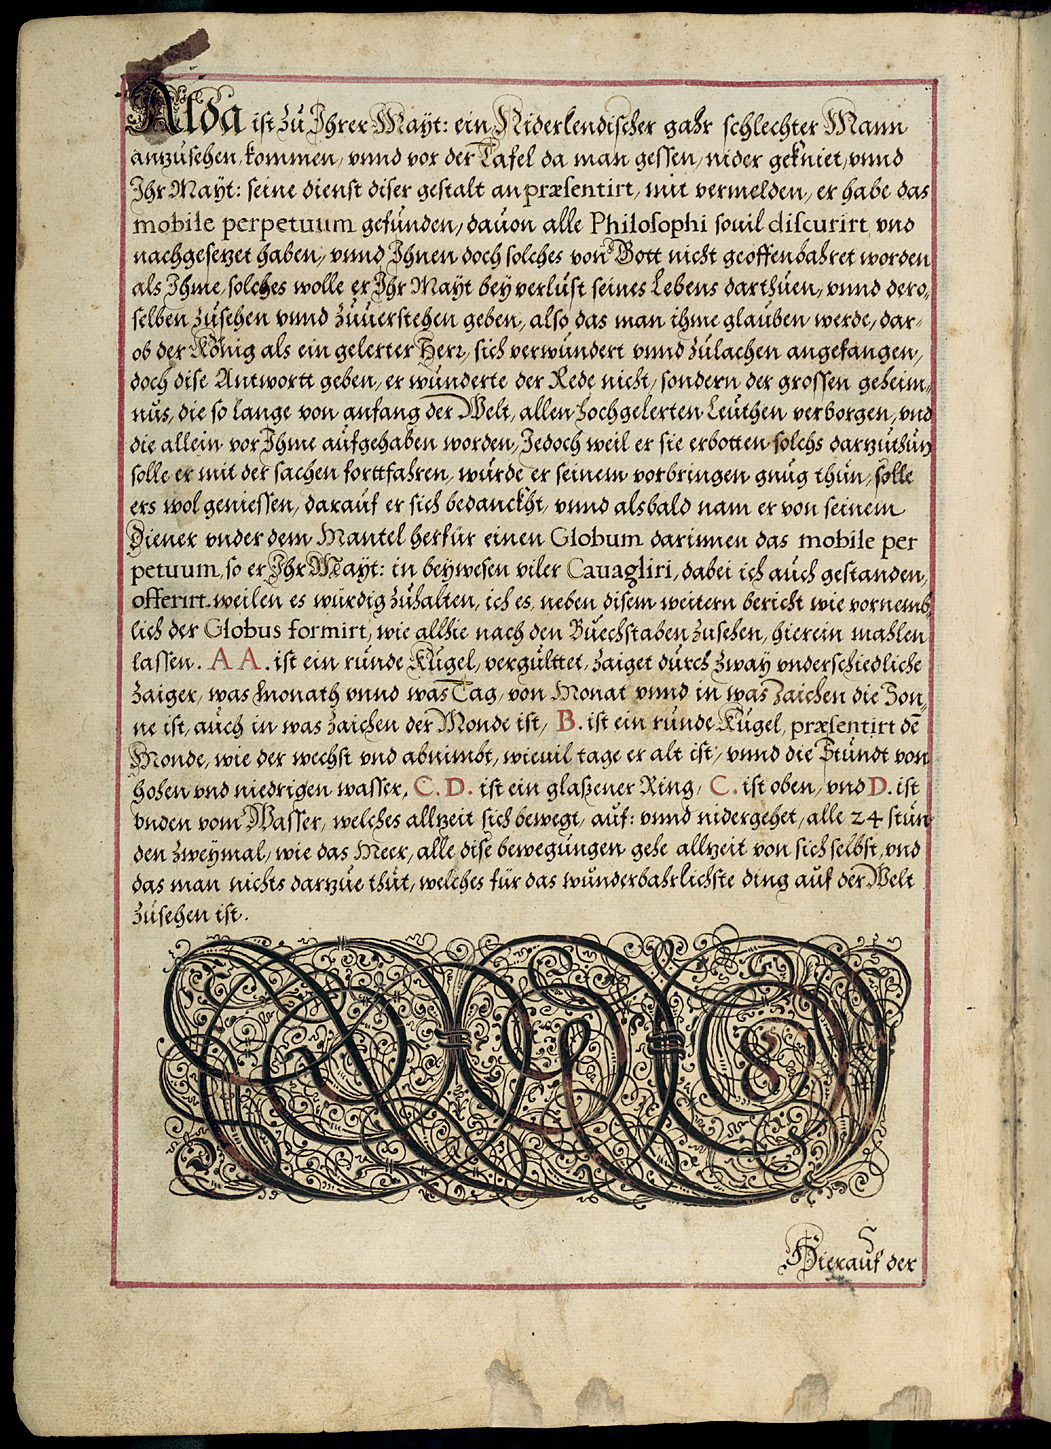 Alda ist zu Ihrer Mayt: ein Niderlendischer gahr schlechter Mann
anzusehen, kommen, vnnd vor der Tafel da man gessen, nider gekniet, vnnd
Ihr Mayt: seine dienst diser gestalt an præsentirt, mit vermelden, er habe das
mobile perpetuum gefunden, dauon alle Philosophi souil discurirt vnd
nachgesezet haben, vnnd Ihnen doch solches von Gott nicht geoffenbahret worden
als Ihme, solches wolle er Ihr Mayt bey verlust seines Lebens darthuen, vnnd dero,
selben zusehen vnnd zuuerstehen geben, also das man ihme glauben werde, dar-
ob der König als ein gelerter Herr, sich verwundert vnnd zulachen angefangen,
doch dise Antwortt geben, er wunderte der Rede nicht, sondern der grossen geheim,
nus, die so lange von anfang der Welt, allen hochgelerten Leuthen verborgen, vnd
die allein vor Ihme aufgehaben worden, Jedoch weil er sie erbotten solchs darzuthun
solle er mit der sachen forttfahren, wurde er seinem vorbringen gnug thun, solle
ers wol geniessen, darauf er sich bedanckht, vnnd alsbald nam er von seinem
Diener vnder dem Mantel herfür einen Globum darinnen das mobile per
petuum, so er Ihr Mayt: in beywesen viler Cauagliri, dabei ich auch gestanden,
offerirt. weilen es würdig zuhalten, ich es, neben disem weitern bericht wie vornemb,
lich der Globus formirt, wie allhie nach den Buechstaben zusehen, hierein mahlen
lassen. A A. ist ein runde Kugel, vergulttet, zaiget durch zway vnderschiedliche
zaiger, was Monath vnnd was Tag, von Monat vnnd in was Zaichen die Son,
ne ist, auch in was zaichen der Monde ist, B. ist ein runde Kugel, præsentirt dē
Monde, wie der wechst vnd abnimbt, wieuil tage er alt ist, vnnd die Stundt von
hohen vnd niedrigen wasser, C. D. ist ein glaßener Ring, C. ist oben, vnd D. ist
vnden vom Wasser, welches allzeit sich bewegt, auf: vnnd nidergehet, alle 24 stun
den zweymal, wie das Meer, alle dise bewegungen gehe allzeit von sich selbst, vnd
das man nichts darzue thut, welches für das wunderbahrlichste ding auf der Welt
zusehen ist.
Hierauf der